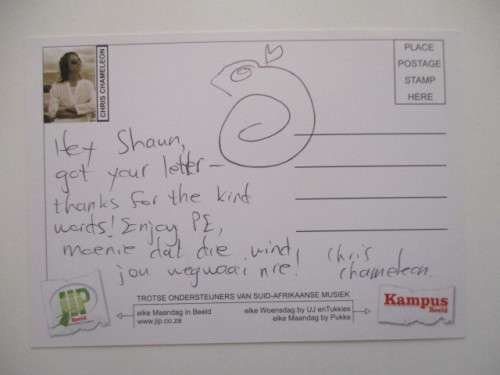 CHRIS CHAMELEON
PLACE
POSTAGE
STAMP
HERE
Hey Shaun,
got your letter –
thanks for the kind
words! Enjoy PE,
moenie dat die wind
jou wegwaai nie!
Chris
Chameleon
TROTSE ONDERSTEUNERS VAN SUID-AFRIKAANSE MUSIEK
JIP
Beeld
elke Maandag in Beeld
www.jip.co.za
elke Woensdag by UJ enTukkies
elke Maandag by Pukke
Kampus
Beeld